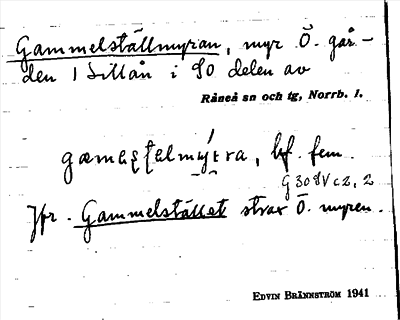 Gammelställmyran, myr Ö. går-
den 1 Sillån i SO delen av
Råneå sn och tg, Norrb. l.
bf. fem.
G 308V c 2, 2
Jfr. Gammelstället strax Ö. myren.
EDVIN BRÄNNSTRÖM 1941